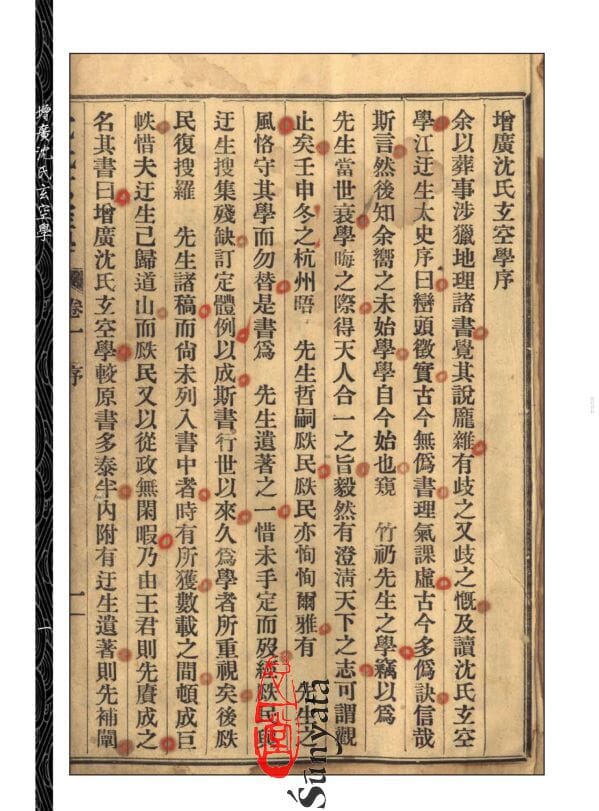 增廣沈氏玄空學序
余以葬事涉獵地理諸書覺其說龐雜有歧之又歧之慨及讀沈氏玄空
學江迂生太史序曰巒頭徵實古今無僞書理氣課虛古今多僞訣信哉
斯言然後知余嚮之未始學學自今始也窺　竹礽先生之學竊以爲
先生當世衰學晦之際得天人合一之旨毅然有澄淸天下之志可謂觀
止矣壬申冬之杭州晤　先生哲嗣瓞民瓞民亦恂恂爾雅有　先生之
風恪守其學而勿替是書爲　先生遺著之一惜未手定而歿經瓞民與
迂生搜集殘缺訂定體例以成斯書行世以來久爲學者所重視矣後瓞
民復搜羅　先生諸稿而尙未列入書中者時有所獲數載之間頓成巨
帙惜夫迂生已歸道山而瓞民又以從政無閑暇乃由王君則先賡成之
名其書曰增廣沈氏玄空學較原書多泰半內附有迂生遺著則先補闡
卷一　序　一
增廣沈氏玄空學
一
Śūnyatā